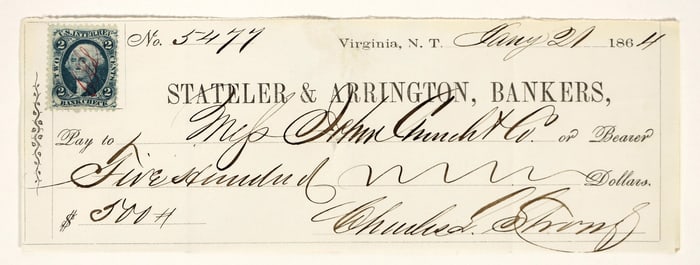 U.S. INTER. REV.
2 2
TWO CENTS
2 2
BANK CHECK
No. 5477 Virginia, N. T. Jany 21 1864
STATELER & ARRINGTON, BANKERS,
Pay to Mess John Church & Co. or Bearer
Five Hundred Dollars.
$ 500
Charles L. Strong